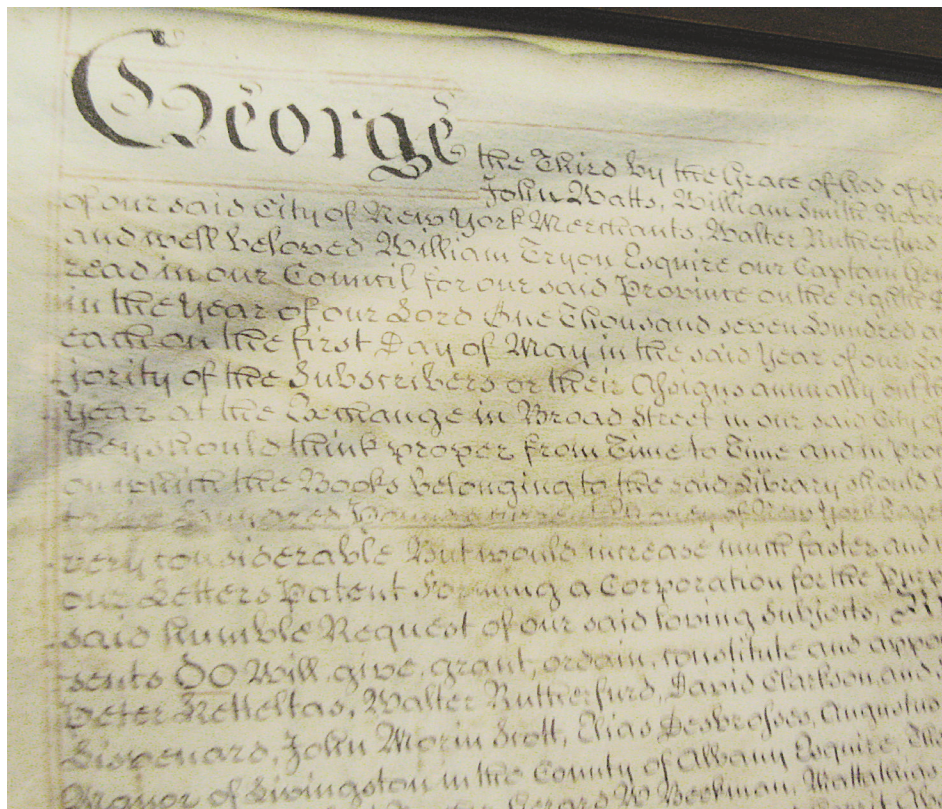 George the Third by the Grace of God of
John Watts, William Smith, Rober
of our said City of New York Merchants, Walter Rutherfurd
and well beloved William Tryon Esquire our Captain Gen
read in our Council for our said Province on the eighth
in the Year of our Lord One Thousand seven Hundred a
each on the first Day of May in the said Year of our Lo
jority of the Subscribers or their Assigns annually
Year at the Exchange in Broad Street in our said City
they should think proper from Time to Time and in pro
on which the Books belonging to the said Library should
Hundred Pounds current Money of New York
very considerable But would increase much faster and
our Letters Patent Forming a Corporation for the Purp
said humble Request of our said loving Subjects,
sents DO Will, give, grant, ordain, constitute and appo
Peter Ketteltas, Walter Rutherfurd, David Clarkson and
Lispenard, John Morin Scott, Elias Desbrosses, Augustus
Manor of Livingston in the County of Albany Esquire,
Gerard W Beekman,